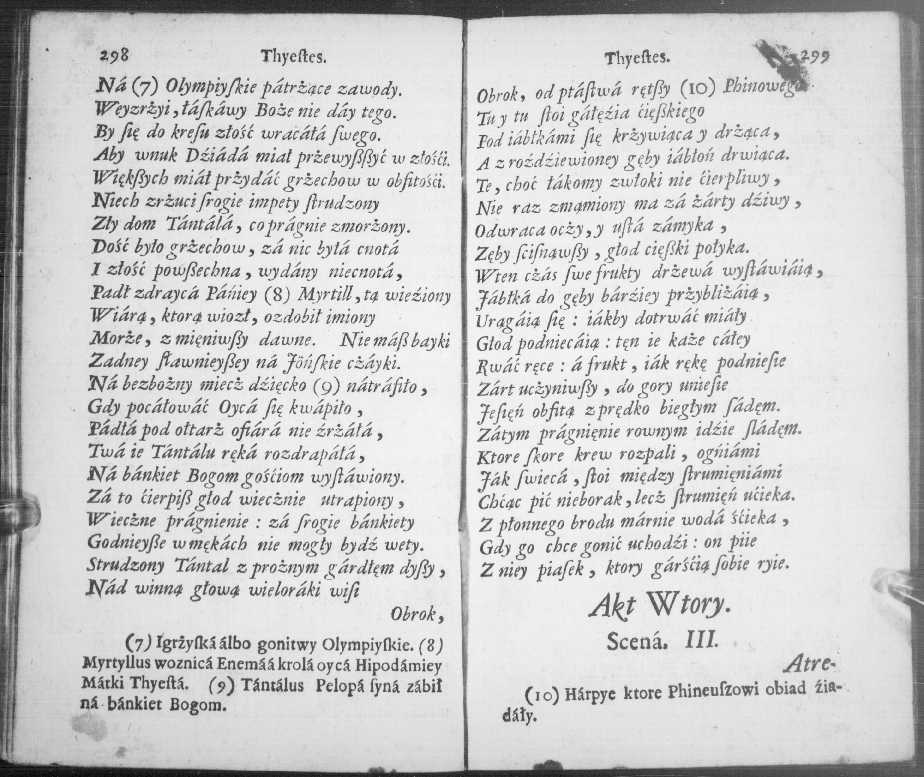 298 Thyestes.
Ná (7) Olympiyſkie pátrżące zawody.
Weyzrżyi, łáſkáwy Boże nie dáy tego.
By ſię do kreſu złość wracáłá ſwego.
Aby wnuk Dźiádá miał przewyßßyć w złośći.
Więkßych miáł przydáć grzechow w obfitośći.
Niech zrżuci ſrogie impety ſtrudzony
Zły dom Tántálá, co prágnie zmorżony.
Dość było grżechow, zá nic byłá cnotá
I złość powßechna, wydány niecnotá,
Padł zdraycá Páńiey (8) Myrtill, tą wieźiony
Wiárą, ktorą wiozł, ozdobił imiony
Morże, z mięniwßy dawne. Nie máß bayki
Zadney ſławnieyßey ná Jöńſkie cżáyki.
Ná bezbożny miecż dźięcko (9) nátráfiło,
Gdy pocáłowáć Oycá ſię kwápiło,
Pádłá pod ołtarż ofiárá nie źrżáłá,
Twá ie Tántálu ręká rozdrapáłá,
Ná bánkiet Bogom gośćiom wyſtáwiony.
Zá to ćierpiß głod wiecżnie utrapiony,
Wiecżne prágnienie : zá ſrogie bánkiety
Godnieyße w mękách nie mogły bydź wety.
Strudzony Tántal z prożnym gárdłęm dyßy,
Nád winną głową wieloráki wiſi
Obrok,
(7) Igrżyſká álbo gonitwy Olympiyſkie. (8)
Myrtyllus woznicá Enemáá krolá oycá Hipodámiey
Mátki Thyeſtá. (9) Tántálus Pelopá ſyná zábił
ná bánkiet Bogom.
Thyestes. 299
Obrok, od ptáſtwá rętßy (10) Phinowego
Tu y tu ſtoi gáłęźia ćięßkiego
Pod iábłkámi ſię krżywiąca y drżąca,
A z rozdźiewioney gęby iábłoń drwiąca.
Te, choć łákomy zwłoki nie ćierpliwy,
Nie raz zmamiony ma zá żárty dźiwy,
Odwraca ocży, y uſtá zámyka,
Zęby ſciſnąwßy, głod cięßki połyka.
W ten cżás ſwe frukty drżewá wyſtáwiáią,
Jábłká do gęby bárźiey przybliżáią,
Urągáią ſię : iákby dotrwáć miáły
Głod podniecáią : tęn ie każe cáłey
Rwáć ręce : á frukt, iák rękę podnieſie
Zárt ucżyniwßy, do gory unieſie
Jeſięń obfitą z prędko biegłym ſádęm.
Zátym prágnięnie rownym idźie śládęm.
Ktore ſkore krew rozpali, ogńiámi
Ják ſwiecá, ſtoi między ſtrumięniámi
Chćąc pić nieborak, lecż ſtrumięń ućieka.
Z płonnego brodu márnie wodá śćieka,
Gdy go chce gonić uchodźi : on piie
Z niey piaſek, ktory gárśćią ſobie ryie.
Akt Wtory.
Scená. III.
Atre-
(10) Hárpye ktore Phineuſzowi obiad źia-
dáły.